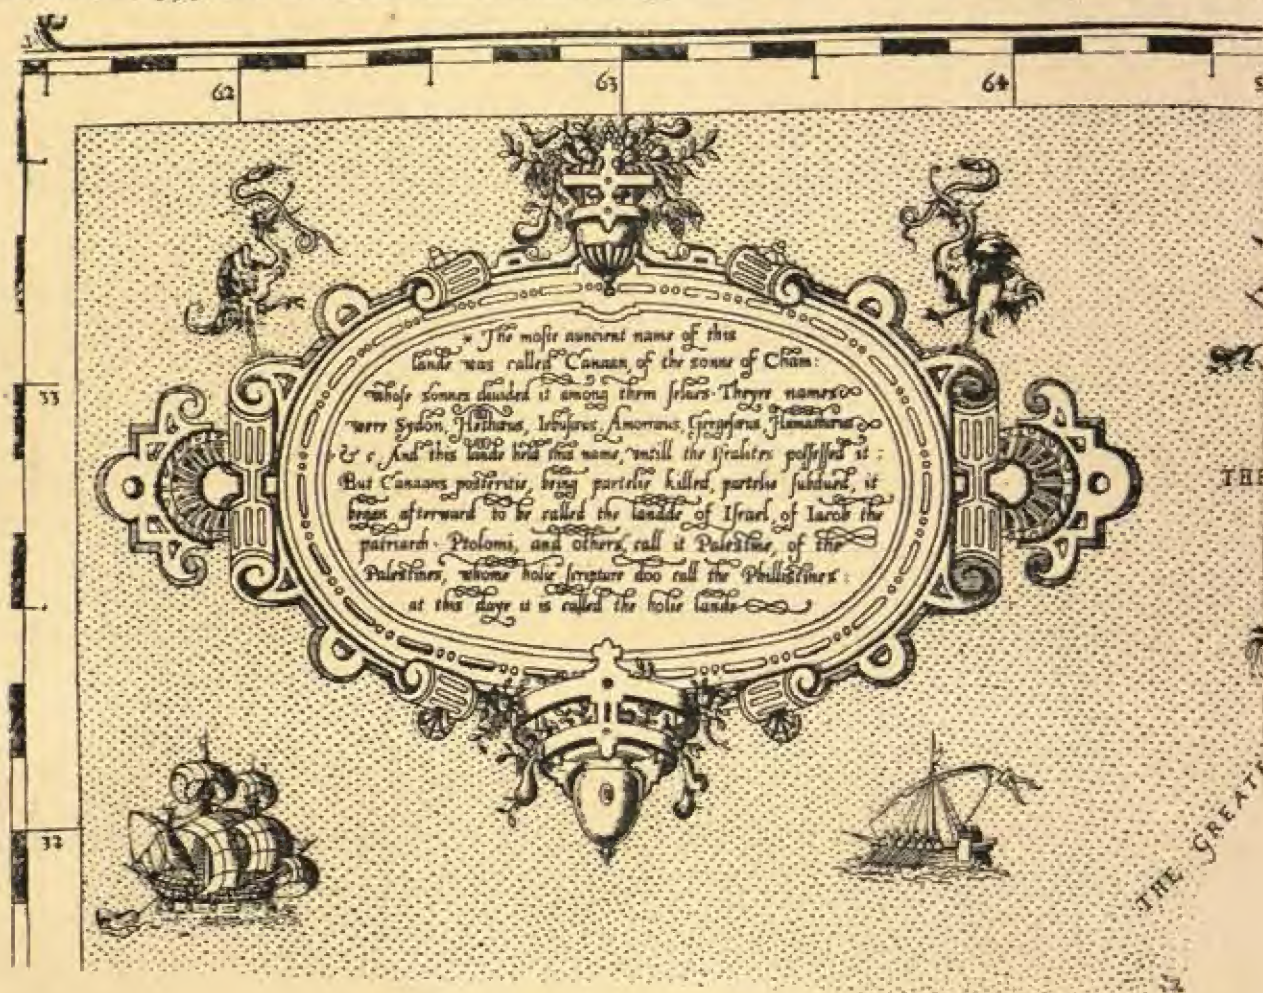 62
63
64
The moste auncient name of this
lande was called Canaan, of the sonne of Cham:
whose sonnes deuided it among them selues. Theyre names
were Sydon, Hethæus, Iebusæus, Amorræus, Gergesæus, Hamathæus
&c. And this lande held this name, vntill the Israelites possessed it:
But Canaans posteritie, being partelie killed, partelie subdued, it
began afterward to be called the landde of Israel, of Iacob the
patriarch. Ptolomi, and others, call it Palestine, of the
Palestines, whome holie scripture doo call the Phillistines:
at this daye it is called the holie lande
33
THE
32
THE GREATE